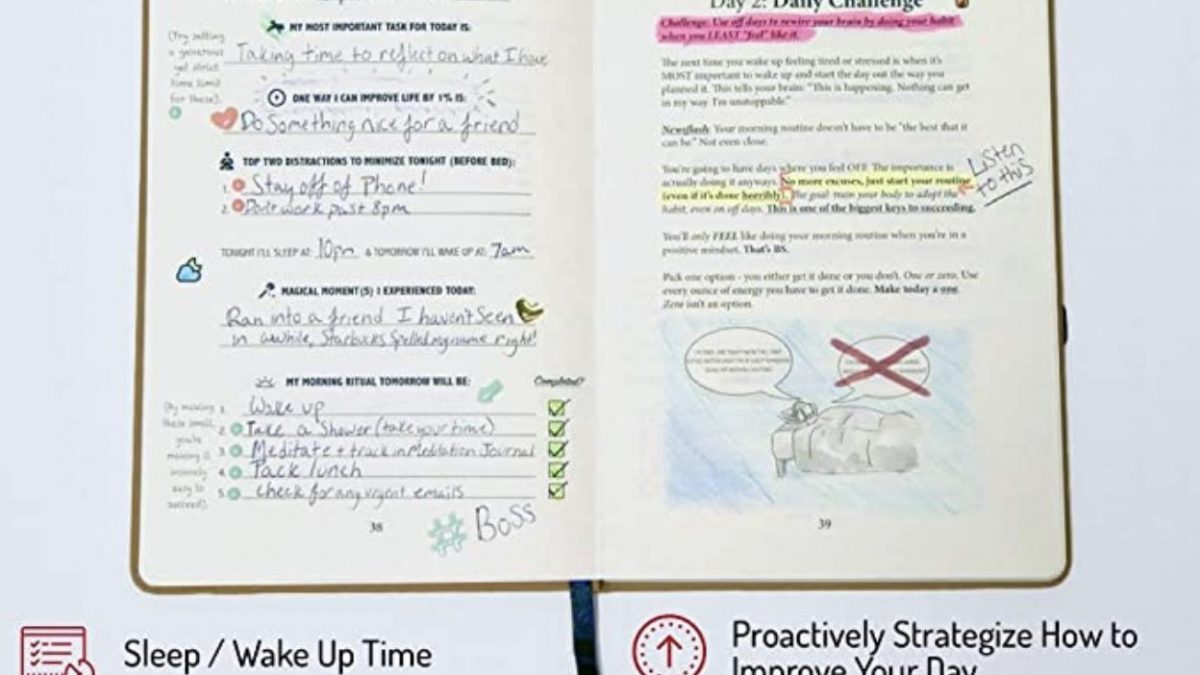 Day 2: Daily Challenge
MY MOST IMPORTANT TASK FOR TODAY IS:
(Try setting
a generous
yet strict
time limit
for these).
Taking time to reflect on what I have
ONE WAY I CAN IMPROVE LIFE BY 1% IS:
Do Something nice for a friend
TOP TWO DISTRACTIONS TO MINIMIZE TONIGHT (BEFORE BED):
1. Stay off of Phone!
2. Don't work past 8pm
TONIGHT I'LL SLEEP AT: 10pm & TOMORROW I'LL WAKE UP AT: 7am
MAGICAL MOMENT(S) I EXPERIENCED TODAY:
Ran into a friend I haven't Seen
in awhile, Starbucks Spelled my name right!
MY MORNING RITUAL TOMORROW WILL BE:
Completed?
(By making
these small,
you're
making it
insanely
easy to
succeed).
1. Wake up
2. Take a Shower (take your time)
3. Meditate + track in Meditation Journal
4. Pack lunch
5. check for any urgent emails
38
# Boss
Challenge: Use off days to rewire your brain by doing your habit
when you LEAST "feel" like it.
The next time you wake up feeling tired or stressed is when it's
MOST important to wake up and start the day out the way you
planned it. This tells your brain: "This is happening. Nothing can get
in my way. I'm unstoppable."
Newsflash: Your morning routine doesn't have to be "the best that it
can be." Not even close.
You're going to have days where you feel OFF. The importance is
actually doing it anyways. No more excuses, just start your routine
(even if it's done horribly). The goal: train your body to adopt the
habit, even on off days. This is one of the biggest keys to succeeding.
Listen
to this
You'll only FEEL like doing your morning routine when you're in a
positive mindset. That's BS.
Pick one option - you either get it done or you don't. One or zero. Use
every ounce of energy you have to get it done. Make today a one.
Zero isn't an option.
39
Sleep / Wake Up Time
Proactively Strategize How to
Improve Your Day